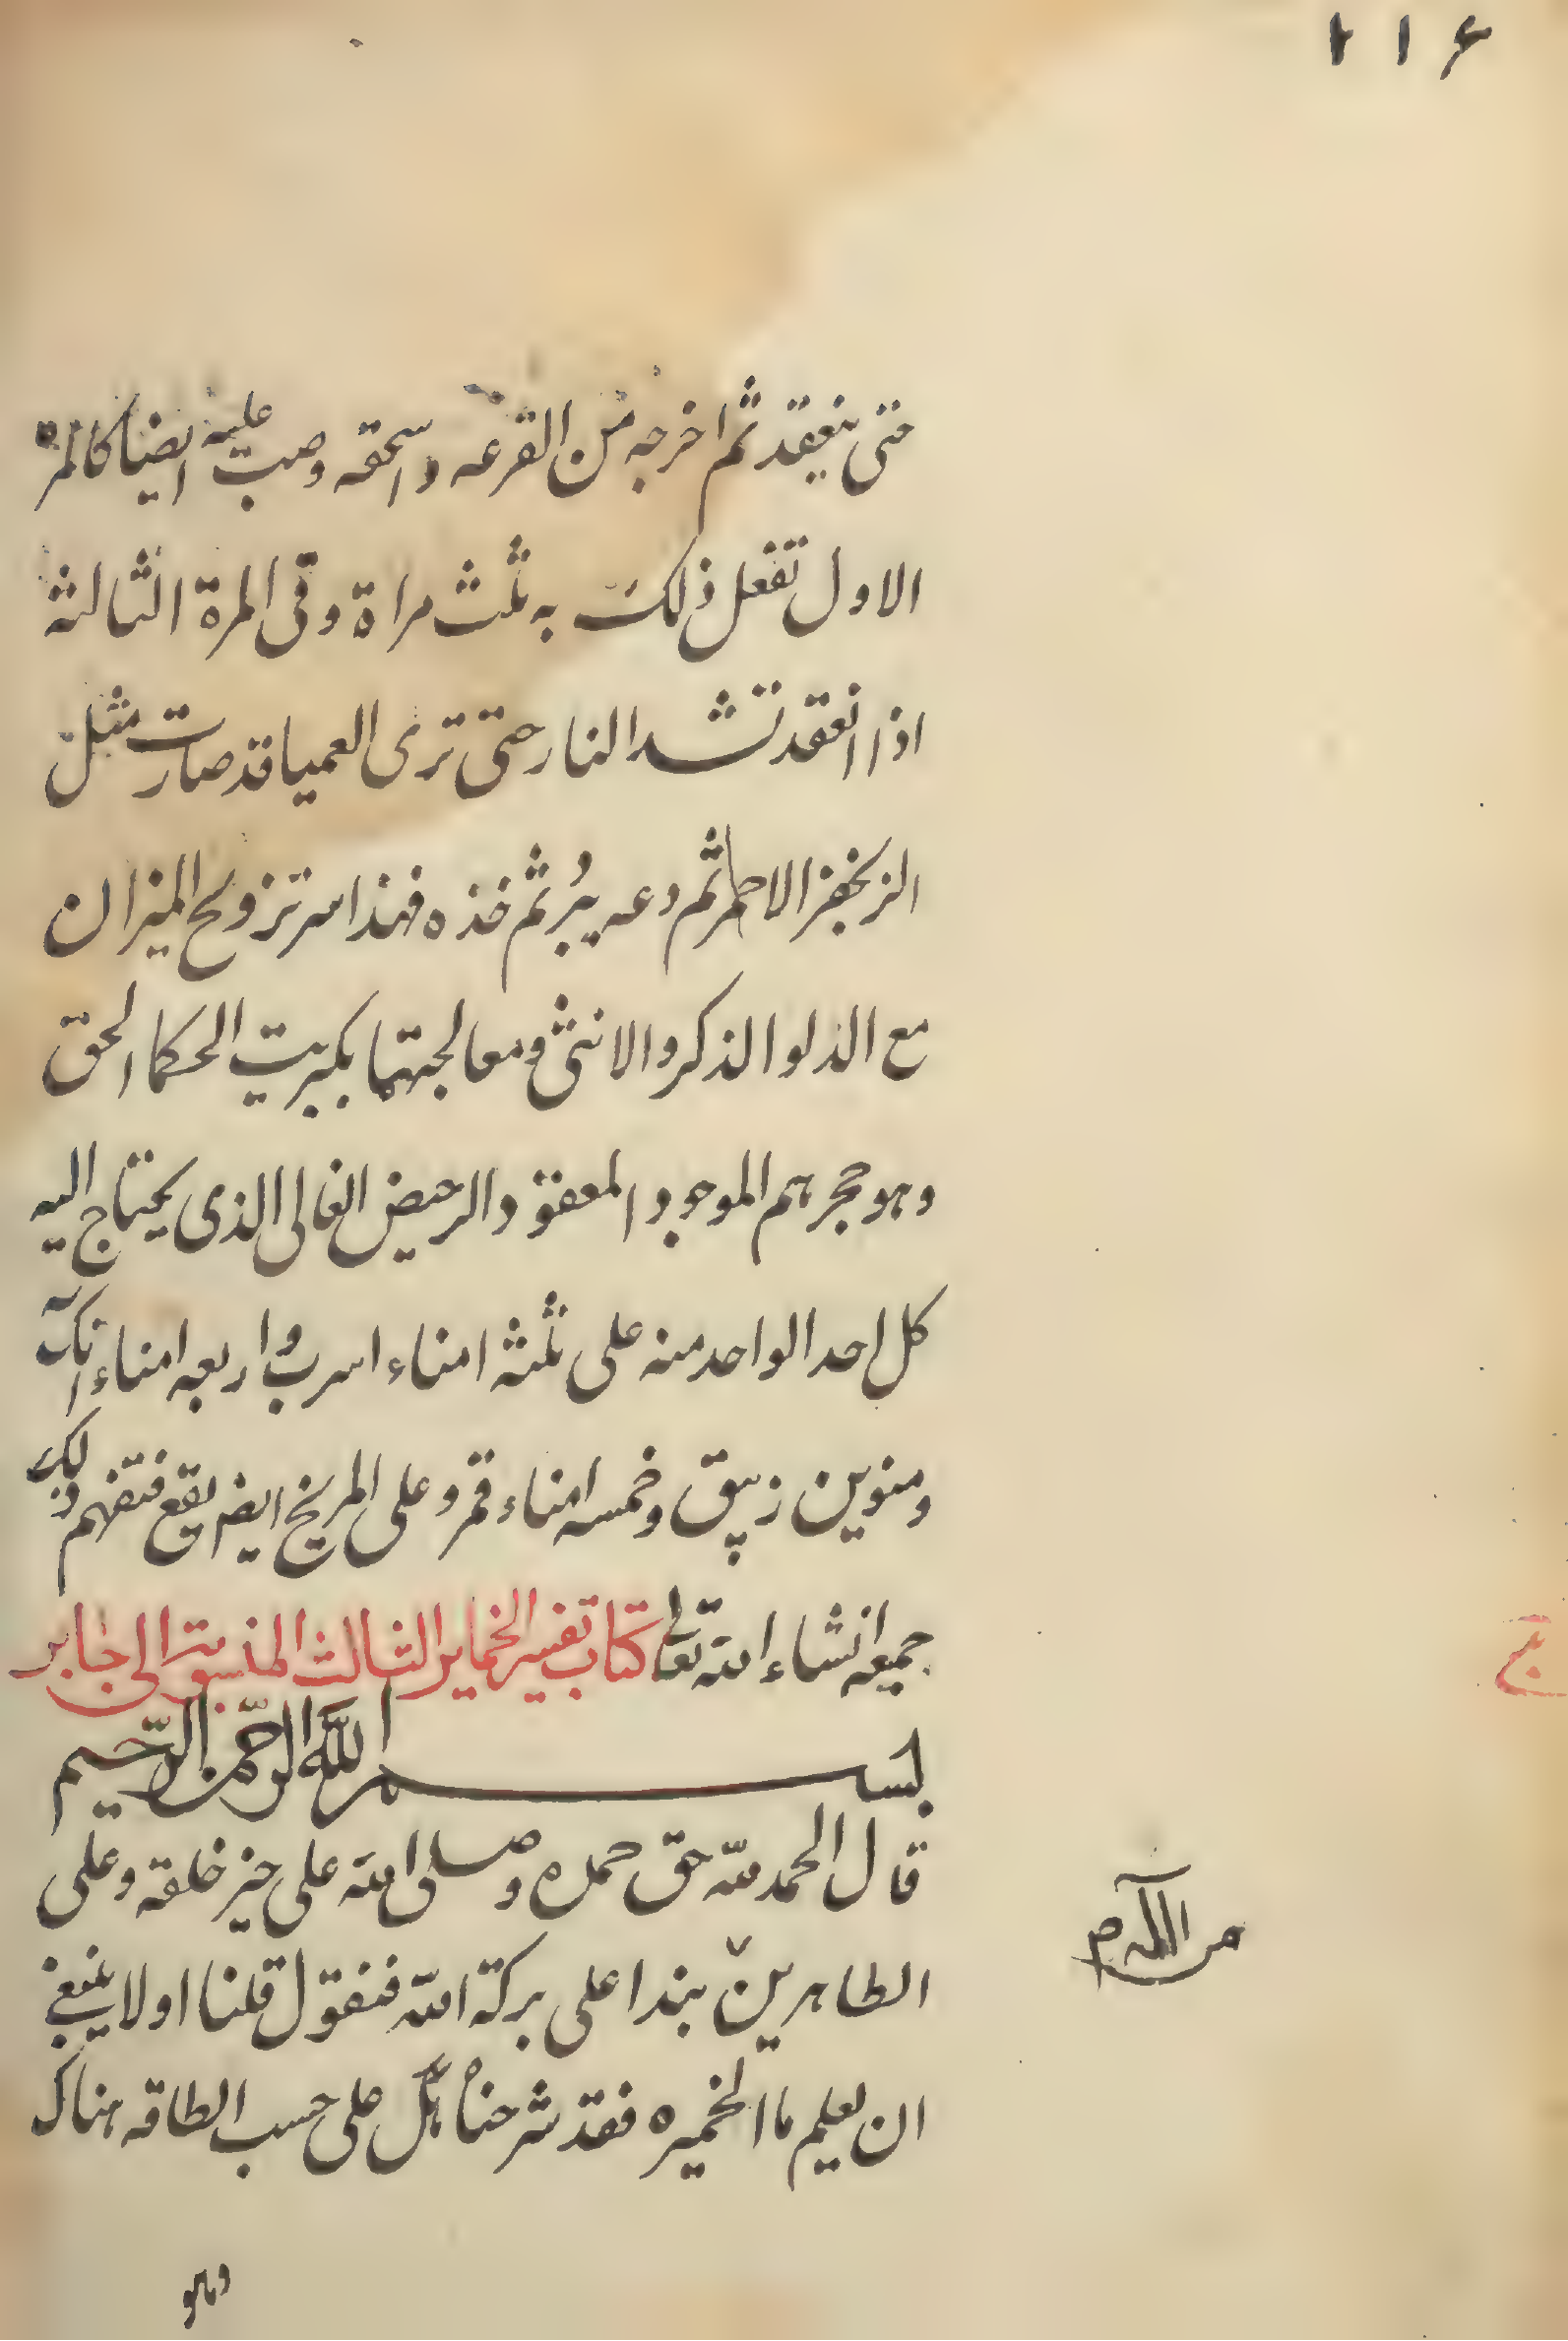 ۱۱۶
حتى ينعقد ثم اخرجه من القرعه واسحقه وصب عليه ايضا كالمرة
الاول تفعل ذلك به ثلث مراة وفى المرة الثالثه
اذا انعقد تشد النار حتى ترى العميا قد صارت مثل
الزنجفر الاحمر ثم دعه يبرد ثم خذه فهذا سر تزويج الميزان
مع الدلو الذكر والانثى ومعالجتهما بكبريت الحكما الحق
وهو حجرهم الموجود المعقود الرخيص الغالى الذى يحتاج اليه
كل احد الواحد منه على ثلثه امناء اسرب واربعه امناء انك
ومنوين زيبق وخمسه امناء قمر وعلى المريخ ايض يقع فتفهم ذلك
جميعه انشاء الله تعالى كتاب تفسير الخماير الثالث المنسوبة الى جابر
بسم الله الرحمن الرحيم
قال الحمد لله حق حمده وصلى الله على خير خلقه وعلى
الطاهرين نبدا على بركة الله فنقول قلنا اولا ينبغى
من اله م
ان نعلم ما الخميره فقد شرحناه لك على حسب الطاقه هناك